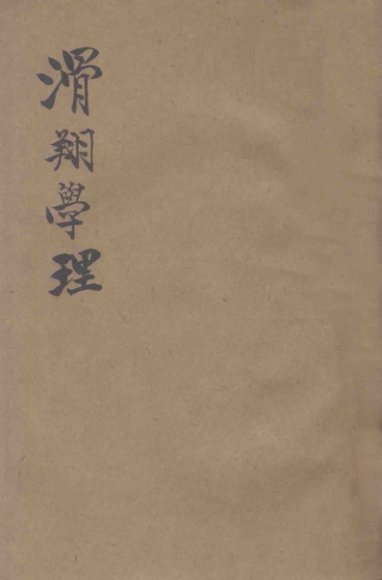 滑翔學理